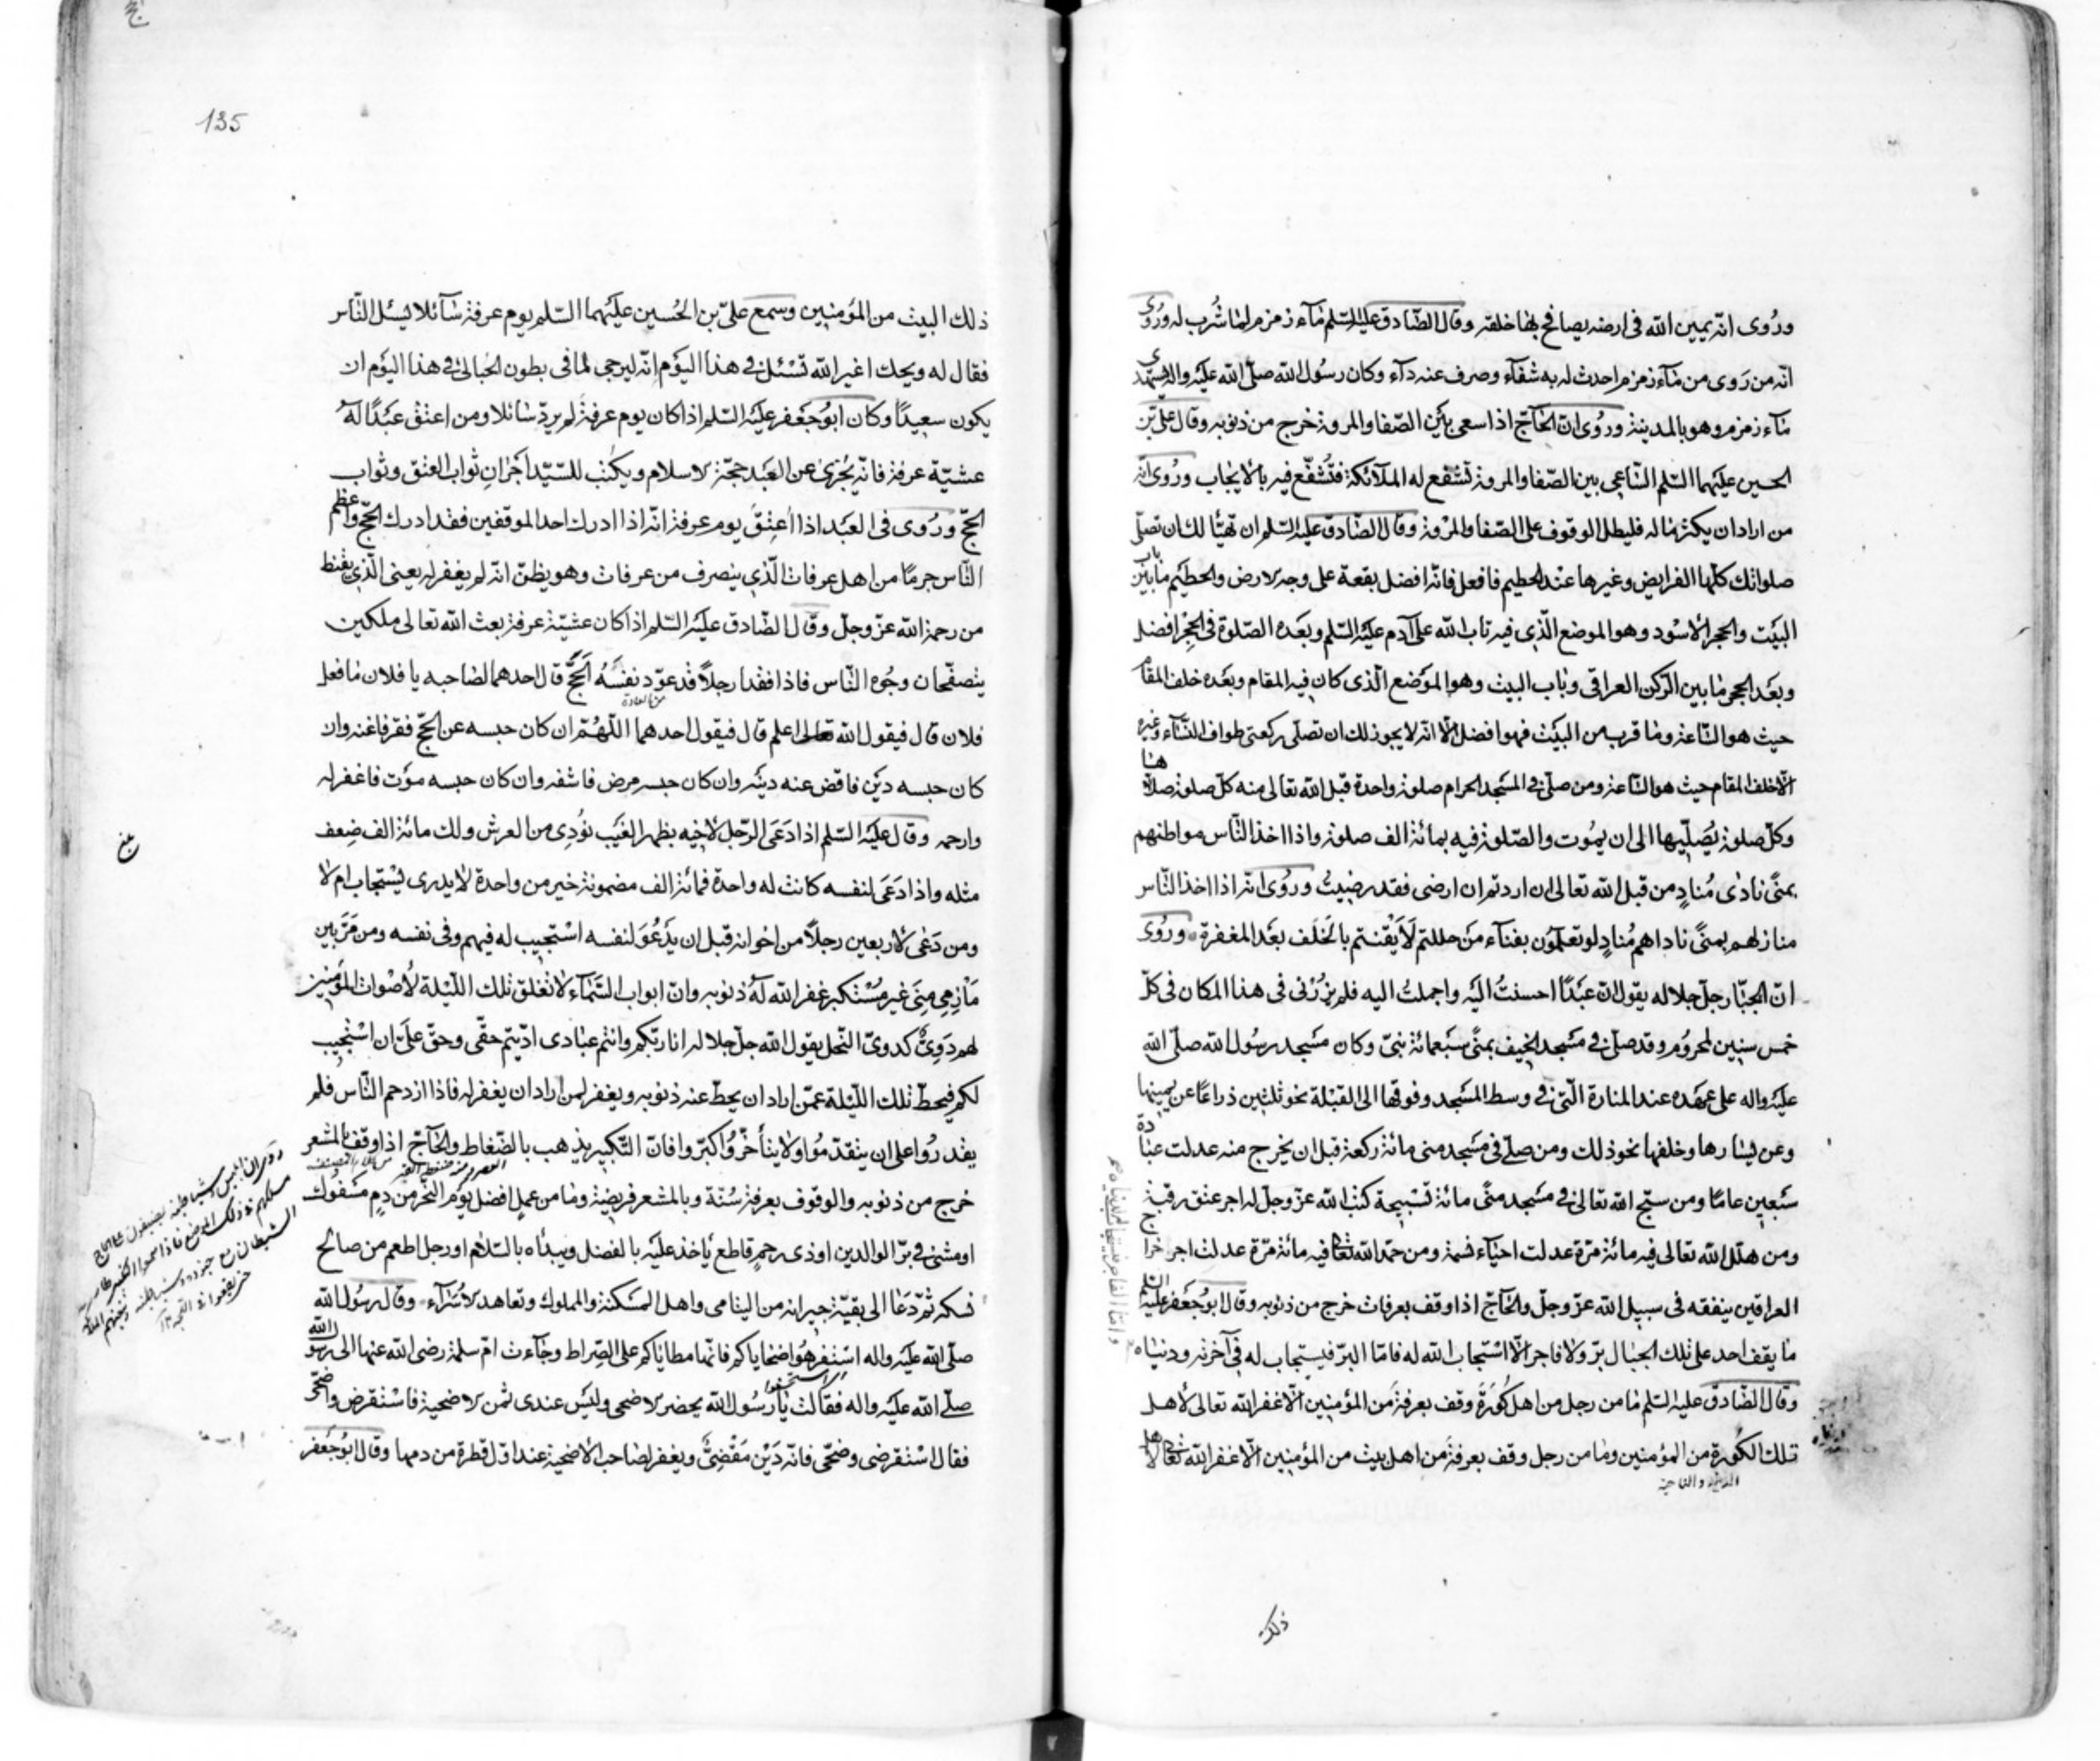 وروى انّه يمين الله فى ارضه يصافح بها خلقه وقال الصّادق عليه السّلم مآء زمزم لما شُرب له ورُوى
انّه من رَوى من مآء زمزم احدث له به شفآء وصرف عنه دآء وكان رسُول الله صلّى الله عليه واله يستهدى
مآء زمزم وهو بالمدينة ورُوى انّ الحٰاجّ اذا سعى بَيْن الصّفا والمروة خرج من ذنوبه وقال علىّ بن
الحسين عليهما السّلم السّاعى بين الصّفا والمروة تشفع له الملآئكة فتُشفّع فيه بالايجاب ورُوى انّه
من اراد ان يكثر ماله فليطل الوقوف على الصّفا والمروة وقال الصّادق عليه السّلم ان تهيّأ لك ان تصلّى
صلواتك كلّها الفرايض وغيرها عند الحطيم فافعل فانّه افضل بقعة على وجه الارض والحطيم ما بين باب
البيت والحجر الاسْود وهو الموضع الّذى فيه تاب الله على آدم عليه السّلم وبعده الصّلوة فى الحِجْر افضل
وبعَد الحجر ما بين الرّكن العراقى وباب البيت وهو الموضع الّذى كان فيه المقام وبعَده خلف المقام
حيث هو السّاعة وما قرب من البيَت فهو افضل الّا انّه لا يجوز لك ان تصلّى ركعتى طواف النّسآء وغيره
الّا خلف المقام حيث هو السّاعة ومن صلّى فى المسَجد الحرام صلوة واحدة قبل الله تعالى منه كلّ صلوة صلّاها
وكلّ صلوة يُصَلّيها الى ان يمُوت والصّلوة فيه بمائة الف صلوة واذا اخذ النّاس مواطنهم
بمنىً نادٰى مُنادٍ من قبل الله تعالى ان اردتم ان ارضى فقد رضيتُ ورُوى انّه اذا اخذ النّاس
منازلهم بمنىً ناداهم مُنادٍ لو تعلمُون بفنآء من حللتم لَأَيْقنتم بالخَلَف بعَد المغفرة ورُوى
انّ الجبّار جلّ جلاله يقول انّ عبَدًا احسنتُ اليَه واجملتُ اليه فلم يزُرْنى فى هذا المكان فى كلّ
خمس سنين لمحروُم وقد صلّى فى مسَجد الخيف بمنىً سبَعمائة نبىّ وكان مسَجد رسُول الله صلّى الله
عليَه واله على عهَده عند المنارة الّتى فى وسط المسَجد وفوقها الى القبْلة نحو ثلثين ذراعًا عن يمينها
وعن يسٰارها وخلفها نحو ذلك ومن صلّى فى مسَجد منى مائة ركعة قبل ان يخرج منه عدلت عبادة
سَبعين عامًا ومن سبّح الله تعالى فى مسَجد منىً مائة تسْبيحة كتب الله عزّ وجلّ له اجر عتق رقبة
ومن هلّل الله تعالى فيه مائة مرّة عدلت احيآء نسمة ومن حمد الله تعالى فيه مائة مرّة عدلت اجر خراج
العراقين ينفقه فى سبيل الله عزّ وجلّ والحٰآجّ اذا وقف بعرفات خرج من ذنوبه وقال ابو جَعفر عليه السّلم
ما يقف احد على تلك الجبٰال برّ ولا فاجر الّا اسْتجاب الله له فامّا البرّ فيسْتجاب له فى آخرته ودنيٰاه
وقال الصّادق عليه السّلم مٰا من رجل من اهل كُورَةٍ وقف بعرفة من المؤمنين الّا غفر الله تعالى لأهل
تلك الكُورة من المؤمنين وما من رجل وقف بعرفة من اهل بيت من المؤمنين الّا غفر الله تعالى لاهل
المدينة والناحية
وامّا الفاجر فيستجاب له فى دنياه
ذلك
135
ذلك البيت من المؤمنين وسمع علىّ بن الحُسين عليَهما السّلم يوم عرفة سٰآئلا يسئل النّاس
فقال له ويحك اغير الله تسْئل فى هذا اليوَم انّه ليرجى لما فى بطون الحبالىٰ فى هذا اليوَم ان
يكون سعِيدًا وكان ابُو جَعْفر عليَه السّلم اذا كان يوم عرفةَ لم يردّ سٰائلا ومن اعتق عبَدًا لَه
عشيّة عرفة فانّه يُجْزى عن العَبد حجّة الاسلام ويكتب للسّيّد اَجْران ثواب العتق وثواب
الحجّ ورُوى فى العَبد اذا اُعتِقَ يوم عرفة انّه اذا ادرك احد الموقفين فقد ادرك الحجّ واعظم
النّاس جرمًا من اهل عرفات الّذى ينصرف من عرفات وهو يظنّ انّه لم يغفر له يعنى الّذى يقنط
من رحمة الله عزّ وجلّ وقال الصّادق عليَه السّلم اذا كان عشيّة عرفة بعث الله تعالى ملكين
يتصفّحان وجُوه النّاس فاذا فقدا رجلًا قد عوّد نفسَهُ الحَجَّ قال احدهما لصٰاحبه يا فلان مٰا فعل
من العادة
فلان قال فيقول الله تعالى اعلم قال فيقول احدهما اللّهُمّ ان كان حبسه عن الحجّ فقر فاغنه وان
كان حبسه ديَن فاقض عنه ديَنه وان كان حبسه مرض فاشفه وان كان حبسه موَت فاغفر له
وارحمه وقال عليَه السّلم اذا دَعَى الرّجل لاخيه بظهر الغَيب نُودى من العرش ولك مائة الف ضِعف
مثله واذا دَعَى لنفسه كانت له واحدة فمائة الف مضمونة خير من واحدة لا يدرى يسْتجاب ام لا
ومن دَعٰى لاربعين رجلًا من اخوانه قبل ان يدَعُوَ لنفسه اسْتجيب له فيهم وفى نفسه ومن مَرّ بين
مَأْزِمى مِنَى غير مُسْتكبر غفر الله لهُ ذنوبه وانّ ابواب السَّمٰآء لا تغلق تلك اللّيْلة لأصْوات المؤمنين
لهم دَوِىٌّ كدوىّ النّحل يقول الله جلّ جلاله انا ربّكم وانتم عبٰادى ادّيتم حقّى وحقّ علىَّ ان اسْتجيب
لكم فيحطّ تلك اللّيْلة عمّن اراد ان يحطّ عنه ذنوبه ويغفر لمن اراد ان يغفر له فاذا ازدحم النّاس فلم
يقدرُوا على ان يتقدّموُا ولا يتأخّروُا كبّروا فانّ التّكبير يذهب بالضّغاط والحٰآجّ اذا وقف بالمشعر
خرج من ذنوبه والوقوف بعرفة سُنّة وبالمشعر فريضة وما من عملٍ افضل يوَم النّحر من دمٍ مسْفوُك
او مشىٰ فى برّ الوالدين او ذى رحمٍ قاطع يأخذ عليَه بالفضل ويبدأه بالسّلام او رجل اطعم من صالح
نسكه ثمّ دعَا الى بقيّة جيرانه من اليتامى واهل المسَكنة والمملوك وتعاهد الاُسَرآء وقال رسُول الله
صلّى الله عليَه واله اسْتفرهُوا ضحاياكم فانّها مطاياكم على الصّراط وجآءت امّ سلمة رضى الله عنها الى رسول الله
صلّى الله عليَه واله فقالت يا رسُول الله يحضر الاضحى وليَس عندى ثمن الاضحية فاسْتقرض واضحّى
فقال اسْتقرضى وضحّى فانّه دَيْن مَقْضِىٌّ ويغفر لصاحب الأضحية عند اوّل قطرة من دمها وقال ابو جَعفر
بلغ